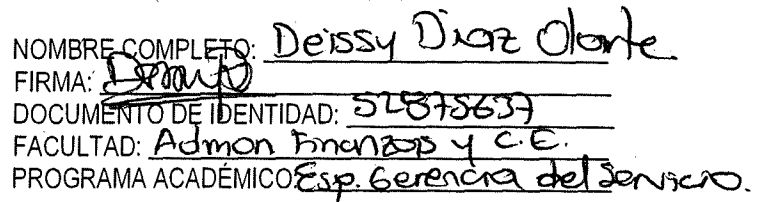 NOMBRE COMPLETO: Deissy Diaz Olarte
FIRMA:
DOCUMENTO DE IDENTIDAD: 52875637
FACULTAD: Admon Finanzas y C.E.
PROGRAMA ACADÉMICO: Esp. Gerencia del Servicio.